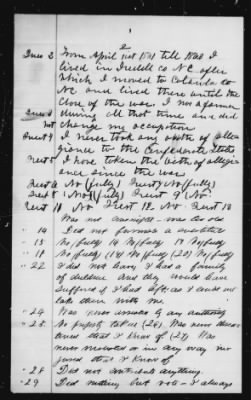 2
Ques 2 From April 1st 1861 till 1863 I
lived in Iredell co NC after
which I moved to Catawba co
NC and lived there until the
close of the war. I was a farmer
Ques 3 during all that time and did
not change my occupation
Quest 4 I never took any oath of alle
giance to the Confederate States
Quest 5 I have taken the oath of allegi
ance since the war
Quest 6 No (fully) Quest 7 No (fully)
Quest 8 No (fully) Quest 9 (No
Quest 10 No Quest 12 No Quest 13
Was not
- 14 Did not furnish a substitute
- 15 No, fully 16 No, fully 17 No, fully
- 18 No, fully (19) No, fully (20) No, fully
- 22 I did not leave. I had a family
of children and they would have
suffered if I had left as I could not
take them with me
- 24 Was never arrested by any authority
- 25 No property taken (26). Was never threat
ened that I know of (27) Was
never molested or in any way in-
jured that I know of
- 28 Did not contribute anything.
- 29 Did nothing but vote - I always